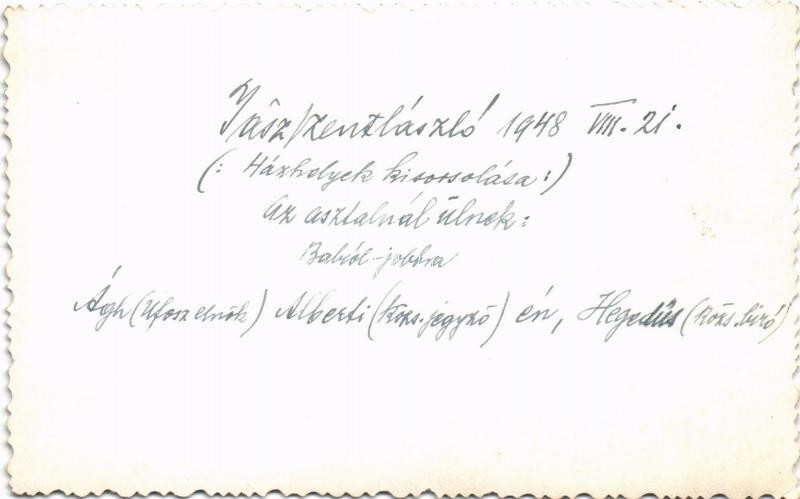 Jászszentlászló 1948 VIII. 21.
(: Házhelyek kisorsolása :)
Az asztalnál ülnek:
Balról-jobbra
Ágh (Ufosz elnök) Alberti (Közs. jegyző) én, Hegedűs (Közs. biró)